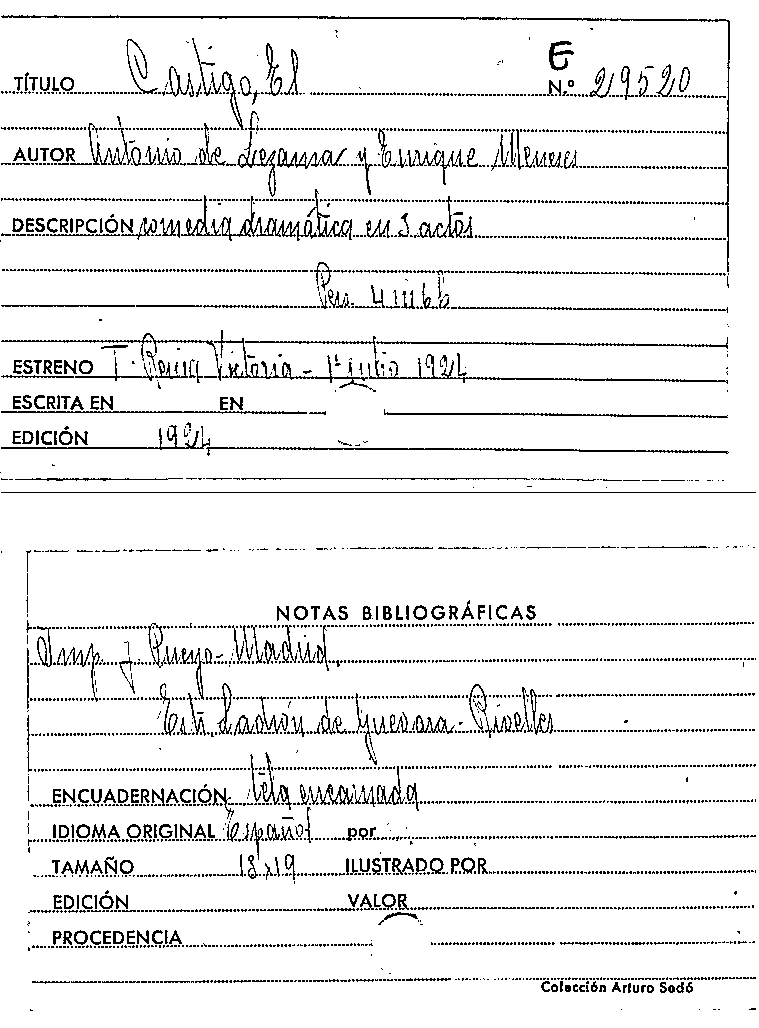 E
TÍTULO Castigo, El N.º 29520
AUTOR Antonio de Lezama y Enrique Meneses
DESCRIPCIÓN comedia dramática en 3 actos
Pers. 4 m 6 h
ESTRENO T. Reina Victoria - 1º julio 1924
ESCRITA EN EN
EDICIÓN 1924
NOTAS BIBLIOGRÁFICAS
Imp J Pueyo - Madrid.
Estr. Ladrón de Guevara - Rivelles
ENCUADERNACIÓN tela encarnada
IDIOMA ORIGINAL Español por
TAMAÑO 13x19 ILUSTRADO POR
EDICIÓN VALOR
PROCEDENCIA
Colección Arturo Sedó